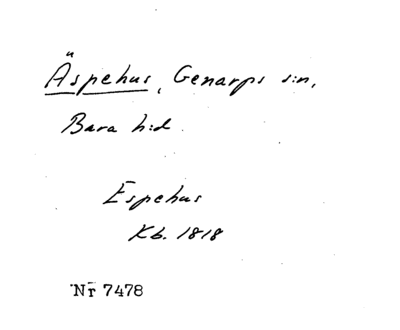 Äspehus, Genarps s:n,
Bara h:d.
Espehus
Kb. 1818
Nr 7478